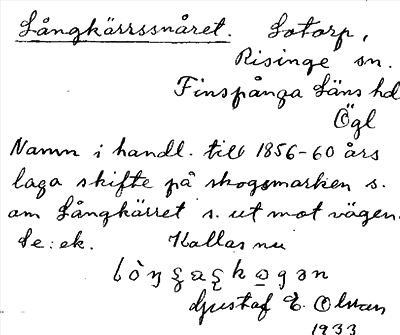 Långkärrssnåret. Lotorp,
Risinge sn.
Finspånga läns hd
Ögl
Namn i handl. till 1856-60 års
laga skifte på skogsmarken s.
om Långkärret s. ut mot vägen.
Se: ek. Kallas nu
Gustaf E. Olsson
1933